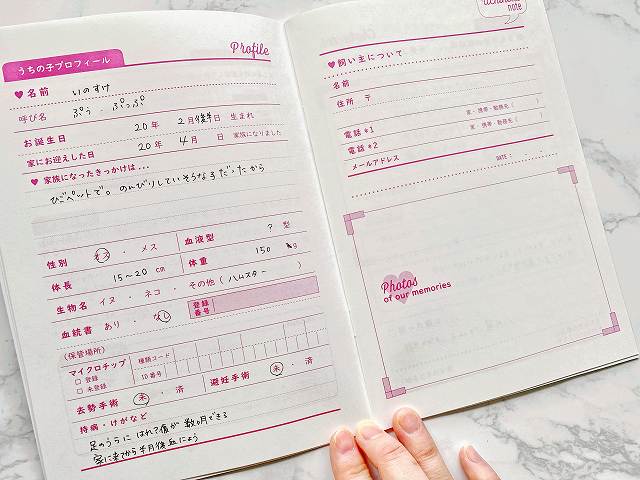 うちの子プロフィール
Profile
♥名前 いのすけ
呼び名 ぷぅ・ぷっぷ
お誕生日 20年 2月後半日 生まれ
家にお迎えした日 20年 4月 日 家族になりました
♥家族になったきっかけは...
ひごペットで。のんびりしていそうな子だったから
性別 オス・メス
血液型 ? 型
体長 15~20 cm
体重 150 g
生物名 イヌ・ネコ・その他(ハムスター)
血統書 あり・なし
登録番号
(保管場所)
マイクロチップ
□登録
□未登録
種類コード
ID番号
去勢手術 未・済
避妊手術 未・済
持病・けがなど
足のうらにはれ?傷が数ヵ月できる
家に来てから半月後
note
♥飼い主について
名前
住所 〒
電話*1 家・携帯・勤務先( )
電話*2 家・携帯・勤務先( )
メールアドレス
DATE: . .
Photos
of our memories